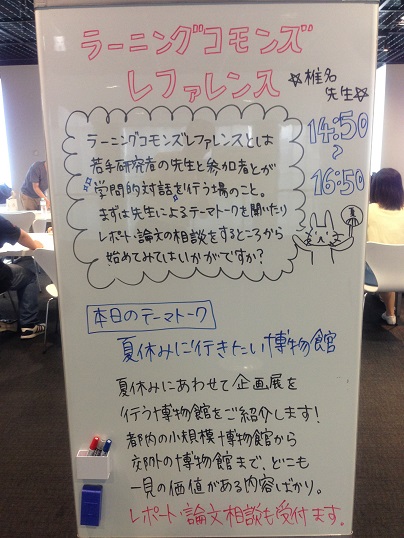 ラーニングコモンズ
レファレンス
☆椎名
先生☆
14:50
〜
16:50
ラーニングコモンズレファレンスとは
若手研究者の先生と参加者とが
"学問的対話"を行う場のこと。
まずは先生によるテーマトークを聞いたり
レポート・論文の相談をするところから
始めてみてはいかがですか?
本日のテーマトーク
夏休みに行きたい博物館
夏休みにあわせて企画展を
行う博物館をご紹介します!
都内の小規模博物館から
郊外の博物館まで、どこも
一見の価値がある内容ばかり。
レポート・論文相談も受付ます。